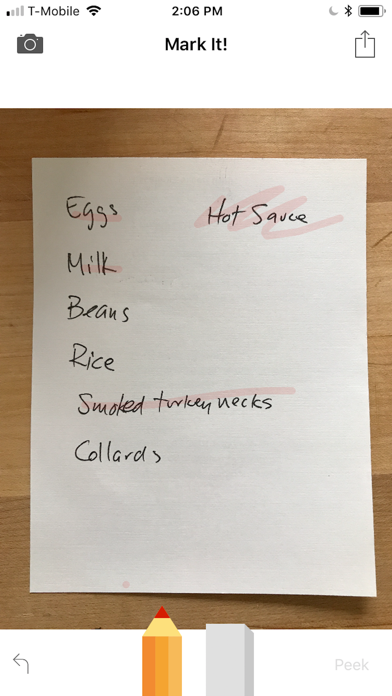 T-Mobile 2:06 PM
Mark It!
Eggs Hot Sauce
Milk
Beans
Rice
Smoked turkey necks
Collards
Peek